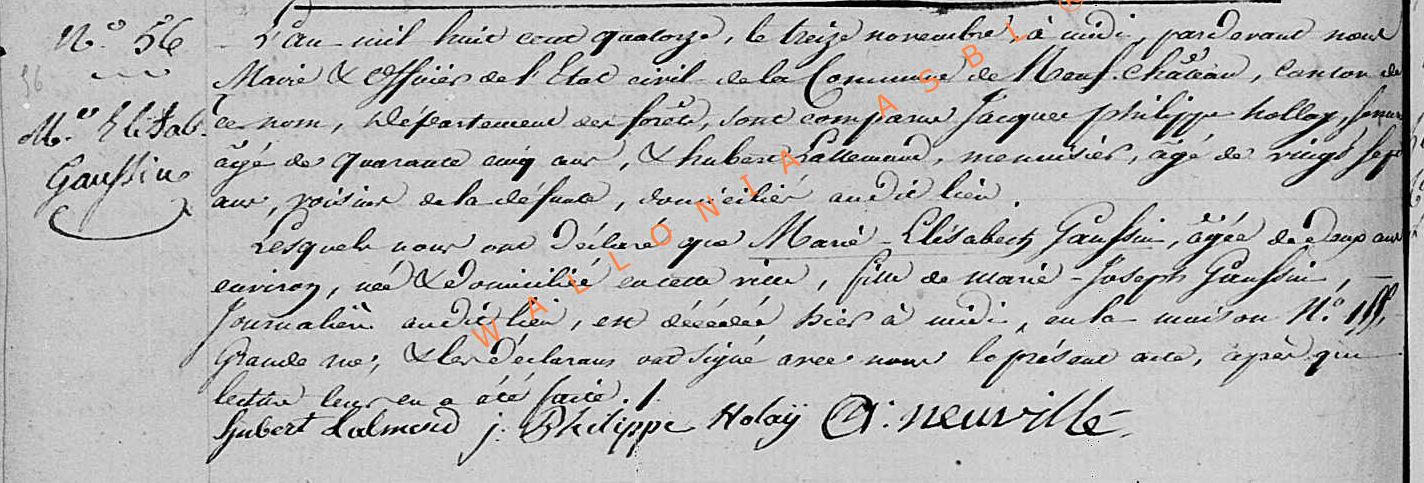 N.° 56
56
M.ie Elisab.
Gaussin
L'an mil huit cent quatorze, le treize novembre, à midi, pardevant nous
Maire & officier de l'Etat civil de la Commune de Neuf-château, canton de
ce nom, Département des forêts, sont comparus Jacques philippe hollay,
âgé de quarante cinq ans, & hubert Lallemand, menuisier, âgé de vingt sept
ans, voisins de la défunte, domiciliés audit lieu.
Lesquels nous ont déclaré que Marie-Elisabeth Gaussin, âgée de deux ans
environ, née & domiciliée en cette ville, fille de marie-Joseph Gaussin,
Journalière audit lieu, est décédée hier à midi, en la maison N.°
Grande rue; & les déclarans ont signé avec nous le présent acte, après que
lecture leur en a été faite ./.
hubert Lalmend j. Philippe Holaÿ A: neuville
WALLONIA ASBL ©